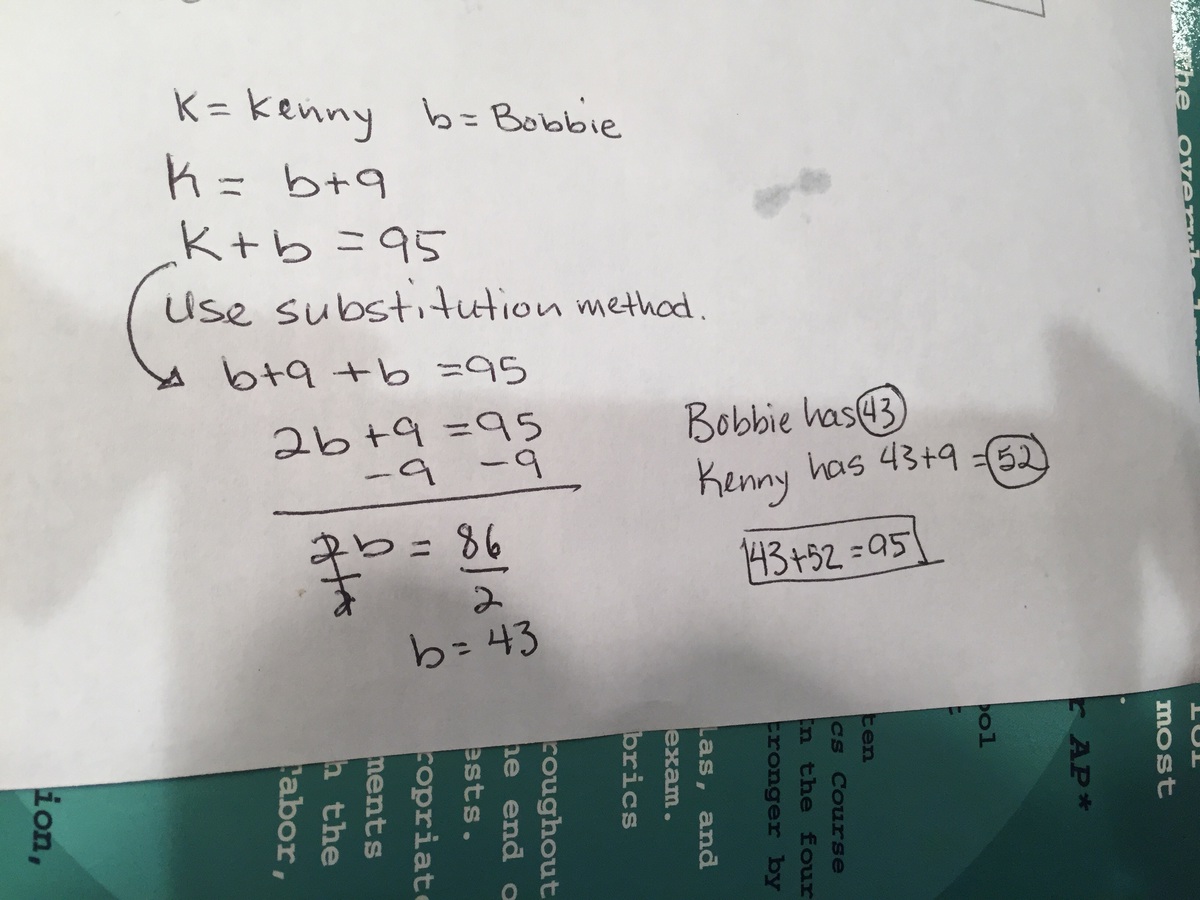 K = Kenny b = Bobbie
K = b+9
K + b = 95
Use substitution method.
b+9 +b =95
2b +9 =95
-9 -9
2b = 86
2 2
b = 43
Bobbie has 43
Kenny has 43+9 = 52
43+52 = 95
the
most
r AP*
ool
ten
cs Course
n the four
tronger by
las, and
exam.
brics
roughout
ne end o
ests.
ropriat
ments
h the
abor,
ion,